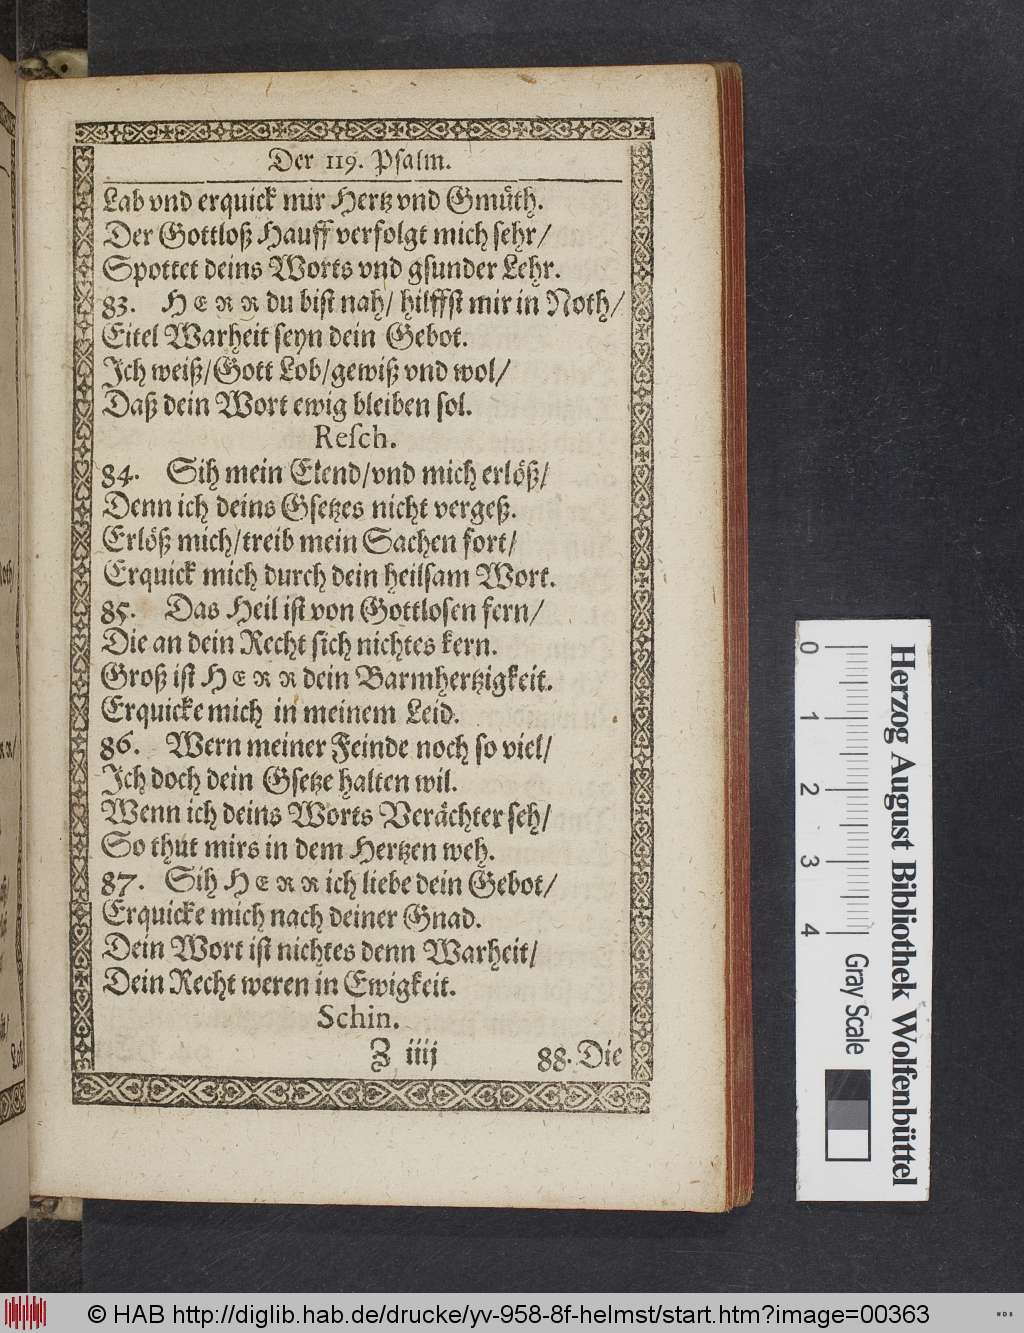 Der 119. Psalm.
Lab vnd erquick mir Hertz vnd Gmuͤth.
Der Gottloß Hauff verfolgt mich sehr/
Spottet deins Worts vnd gsunder Lehr.
83. HERR du bist nah/ hilffst mir in Noth/
Eitel Warheit seyn dein Gebot.
Ich weiß/Gott Lob/gewiß vnd wol/
Daß dein Wort ewig bleiben sol.
Resch.
84. Sih mein Elend/vnd mich erlöß/
Denn ich deins Gsetzes nicht vergeß.
Erlöß mich/treib mein Sachen fort/
Erquick mich durch dein heilsam Wort.
85. Das Heil ist von Gottlosen fern/
Die an dein Recht sich nichtes kern.
Groß ist HERR dein Barmhertzigkeit.
Erquicke mich in meinem Leid.
86. Wern meiner Feinde noch so viel/
Ich doch dein Gsetze halten wil.
Wenn ich deins Worts Veraͤchter seh/
So thut mirs in dem Hertzen weh.
87. Sih HERR ich liebe dein Gebot/
Erquicke mich nach deiner Gnad.
Dein Wort ist nichtes denn Warheit/
Dein Recht weren in Ewigkeit.
Schin.
Z iiij 88. Die
0 1 2 3 4 Gray Scale
Herzog August Bibliothek Wolfenbüttel
© HAB http://diglib.hab.de/drucke/yv-958-8f-helmst/start.htm?image=00363